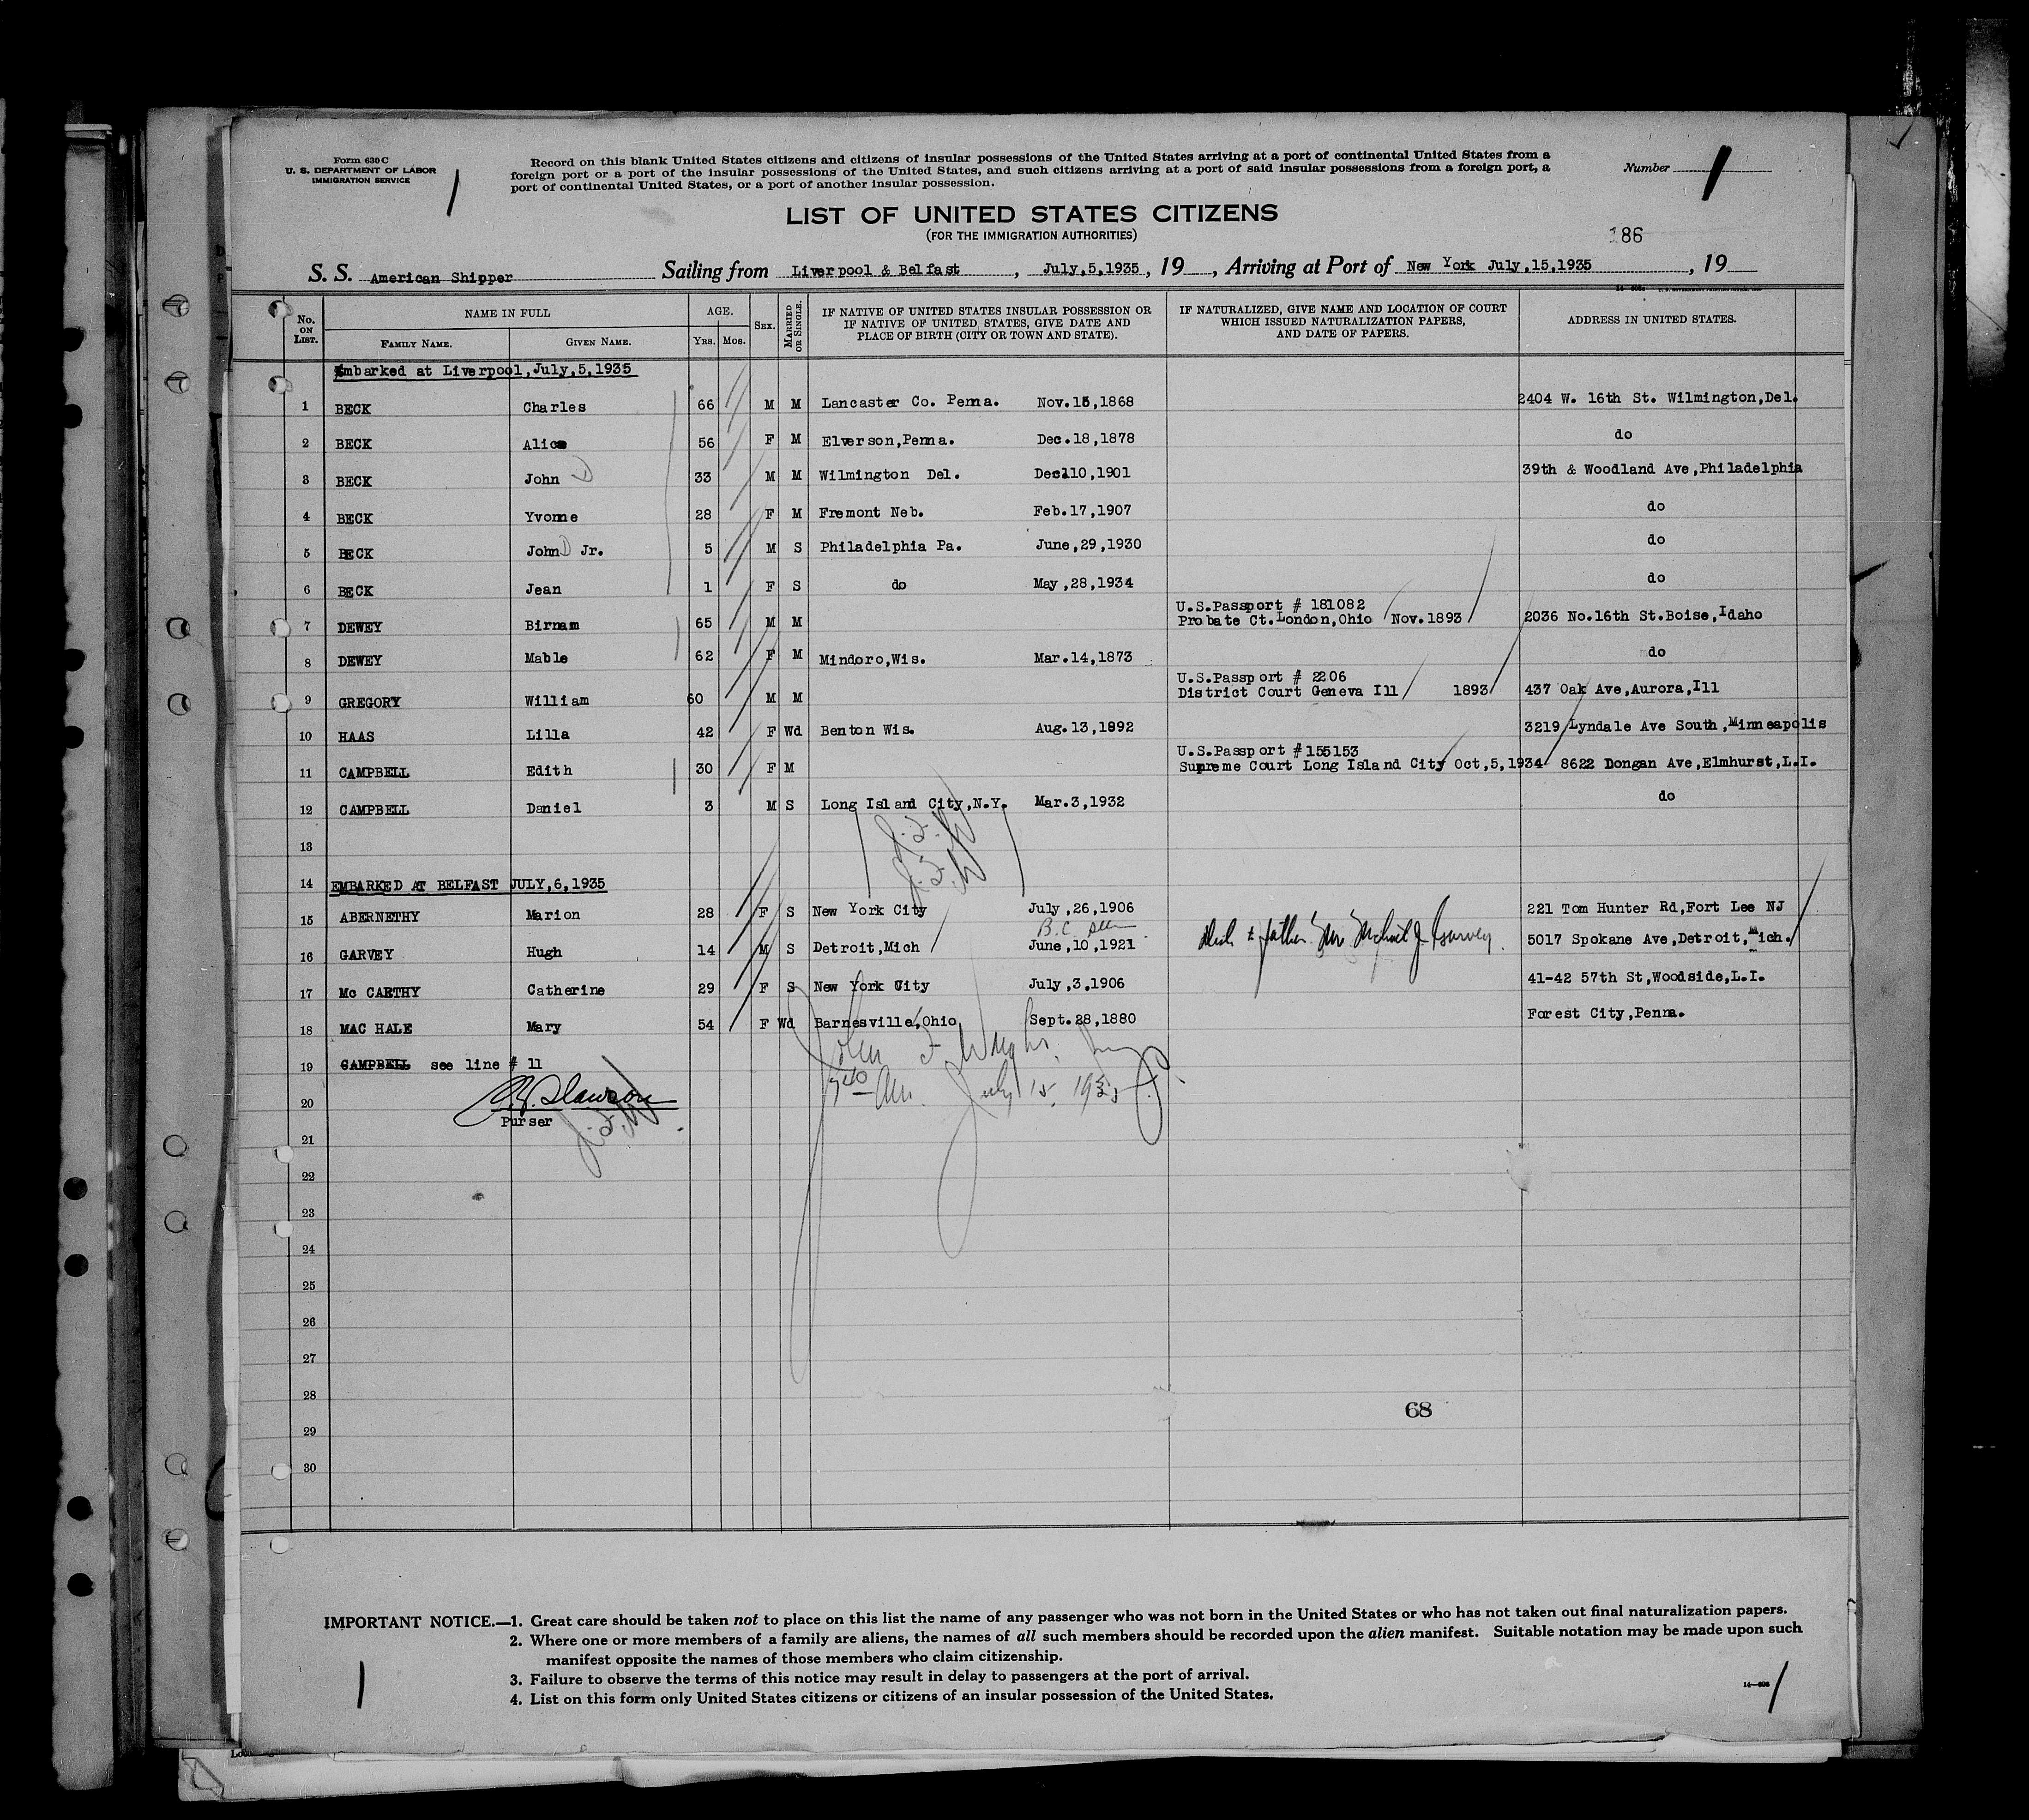 Form 630 C
U. S. DEPARTMENT OF LABOR
IMMIGRATION SERVICE
Record on this blank United States citizens and citizens of insular possessions of the United States arriving at a port of continental United States from a
foreign port or a port of the insular possessions of the United States, and such citizens arriving at a port of said insular possessions from a foreign port, a
port of continental United States, or a port of another insular possession.
Number 1
LIST OF UNITED STATES CITIZENS
(FOR THE IMMIGRATION AUTHORITIES)
186
S. S. American Shipper Sailing from Liverpool & Belfast, July,5,1935, 19 , Arriving at Port of New York July,15,1935, 19
No. ON LIST. NAME IN FULL FAMILY NAME. GIVEN NAME. AGE. YRS. MOS. SEX. MARRIED OR SINGLE. IF NATIVE OF UNITED STATES INSULAR POSSESSION OR IF NATIVE OF UNITED STATES, GIVE DATE AND PLACE OF BIRTH (CITY OR TOWN AND STATE). IF NATURALIZED, GIVE NAME AND LOCATION OF COURT WHICH ISSUED NATURALIZATION PAPERS, AND DATE OF PAPERS. ADDRESS IN UNITED STATES.
Embarked at Liverpool,July,5,1935
1 BECK Charles 66 M M Lancaster Co. Penna. Nov.15,1868 2404 W. 16th St. Wilmington,Del.
2 BECK Alice 56 F M Elverson,Penna. Dec.18,1878 do
3 BECK John D 33 M M Wilmington Del. Dec110,1901 39th & Woodland Ave,Philadelphia
4 BECK Yvonne 28 F M Fremont Neb. Feb.17,1907 do
5 BECK John D Jr. 5 M S Philadelphia Pa. June,29,1930 do
6 BECK Jean 1 F S do May,28,1934 do
U.S.Passport # 181082
7 DEWEY Birnam 65 M M Probate Ct.London,Ohio Nov.1893 2036 No.16th St.Boise,Idaho
8 DEWEY Mable 62 F M Mindoro,Wis. Mar.14,1873 do
U.S.Passport # 2206
9 GREGORY William 60 M M District Court Geneva Ill 1893 437 Oak Ave,Aurora,Ill
10 HAAS Lilla 42 F Wd Benton Wis. Aug.13,1892 3219 Lyndale Ave South,Minneapolis
U.S.Passport #155153
11 CAMPBELL Edith 30 F M Supreme Court Long Island City Oct,5,1934 8622 Dongan Ave,Elmhurst,L.I.
12 CAMPBELL Daniel 3 M S Long Island City,N.Y. Mar.3,1932 do
13
14 EMBARKED AT BELFAST JULY,6,1935
15 ABERNETHY Marion 28 F S New York City July,26,1906 221 Tom Hunter Rd,Fort Lee NJ
B.C. seen
16 GARVEY Hugh 14 M S Detroit,Mich June,10,1921 5017 Spokane Ave,Detroit,Mich.
17 Mc CARTHY Catherine 29 F S New York City July,3,1906 41-42 57th St,Woodside,L.I.
18 MAC HALE Mary 54 F Wd Barnesville,Ohio Sept.28,1880 Forest City,Penna.
19 CAMPBELL see line # 11
John F. Wright
20 July 15, 1935
Purser
21
22
23
24
25
26
27
28
68
29
30
IMPORTANT NOTICE.—1. Great care should be taken not to place on this list the name of any passenger who was not born in the United States or who has not taken out final naturalization papers.
2. Where one or more members of a family are aliens, the names of all such members should be recorded upon the alien manifest. Suitable notation may be made upon such
manifest opposite the names of those members who claim citizenship.
3. Failure to observe the terms of this notice may result in delay to passengers at the port of arrival.
4. List on this form only United States citizens or citizens of an insular possession of the United States.